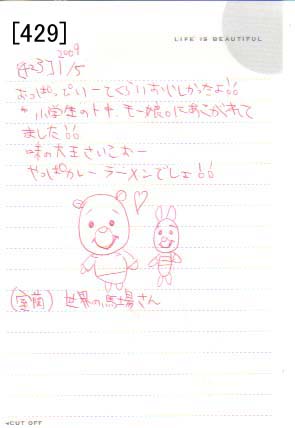 [429]
LIFE IS BEAUTIFUL
2009
1/5
おっぱ。ぴりーてくらいおいしかったよ!!
小学生のトキ、モー娘。にあこがれて
ました!!
味の大王さいこおー
やっぱカレーラーメンでしょ!!
(室蘭) 世界の馬場さん
◂CUT OFF